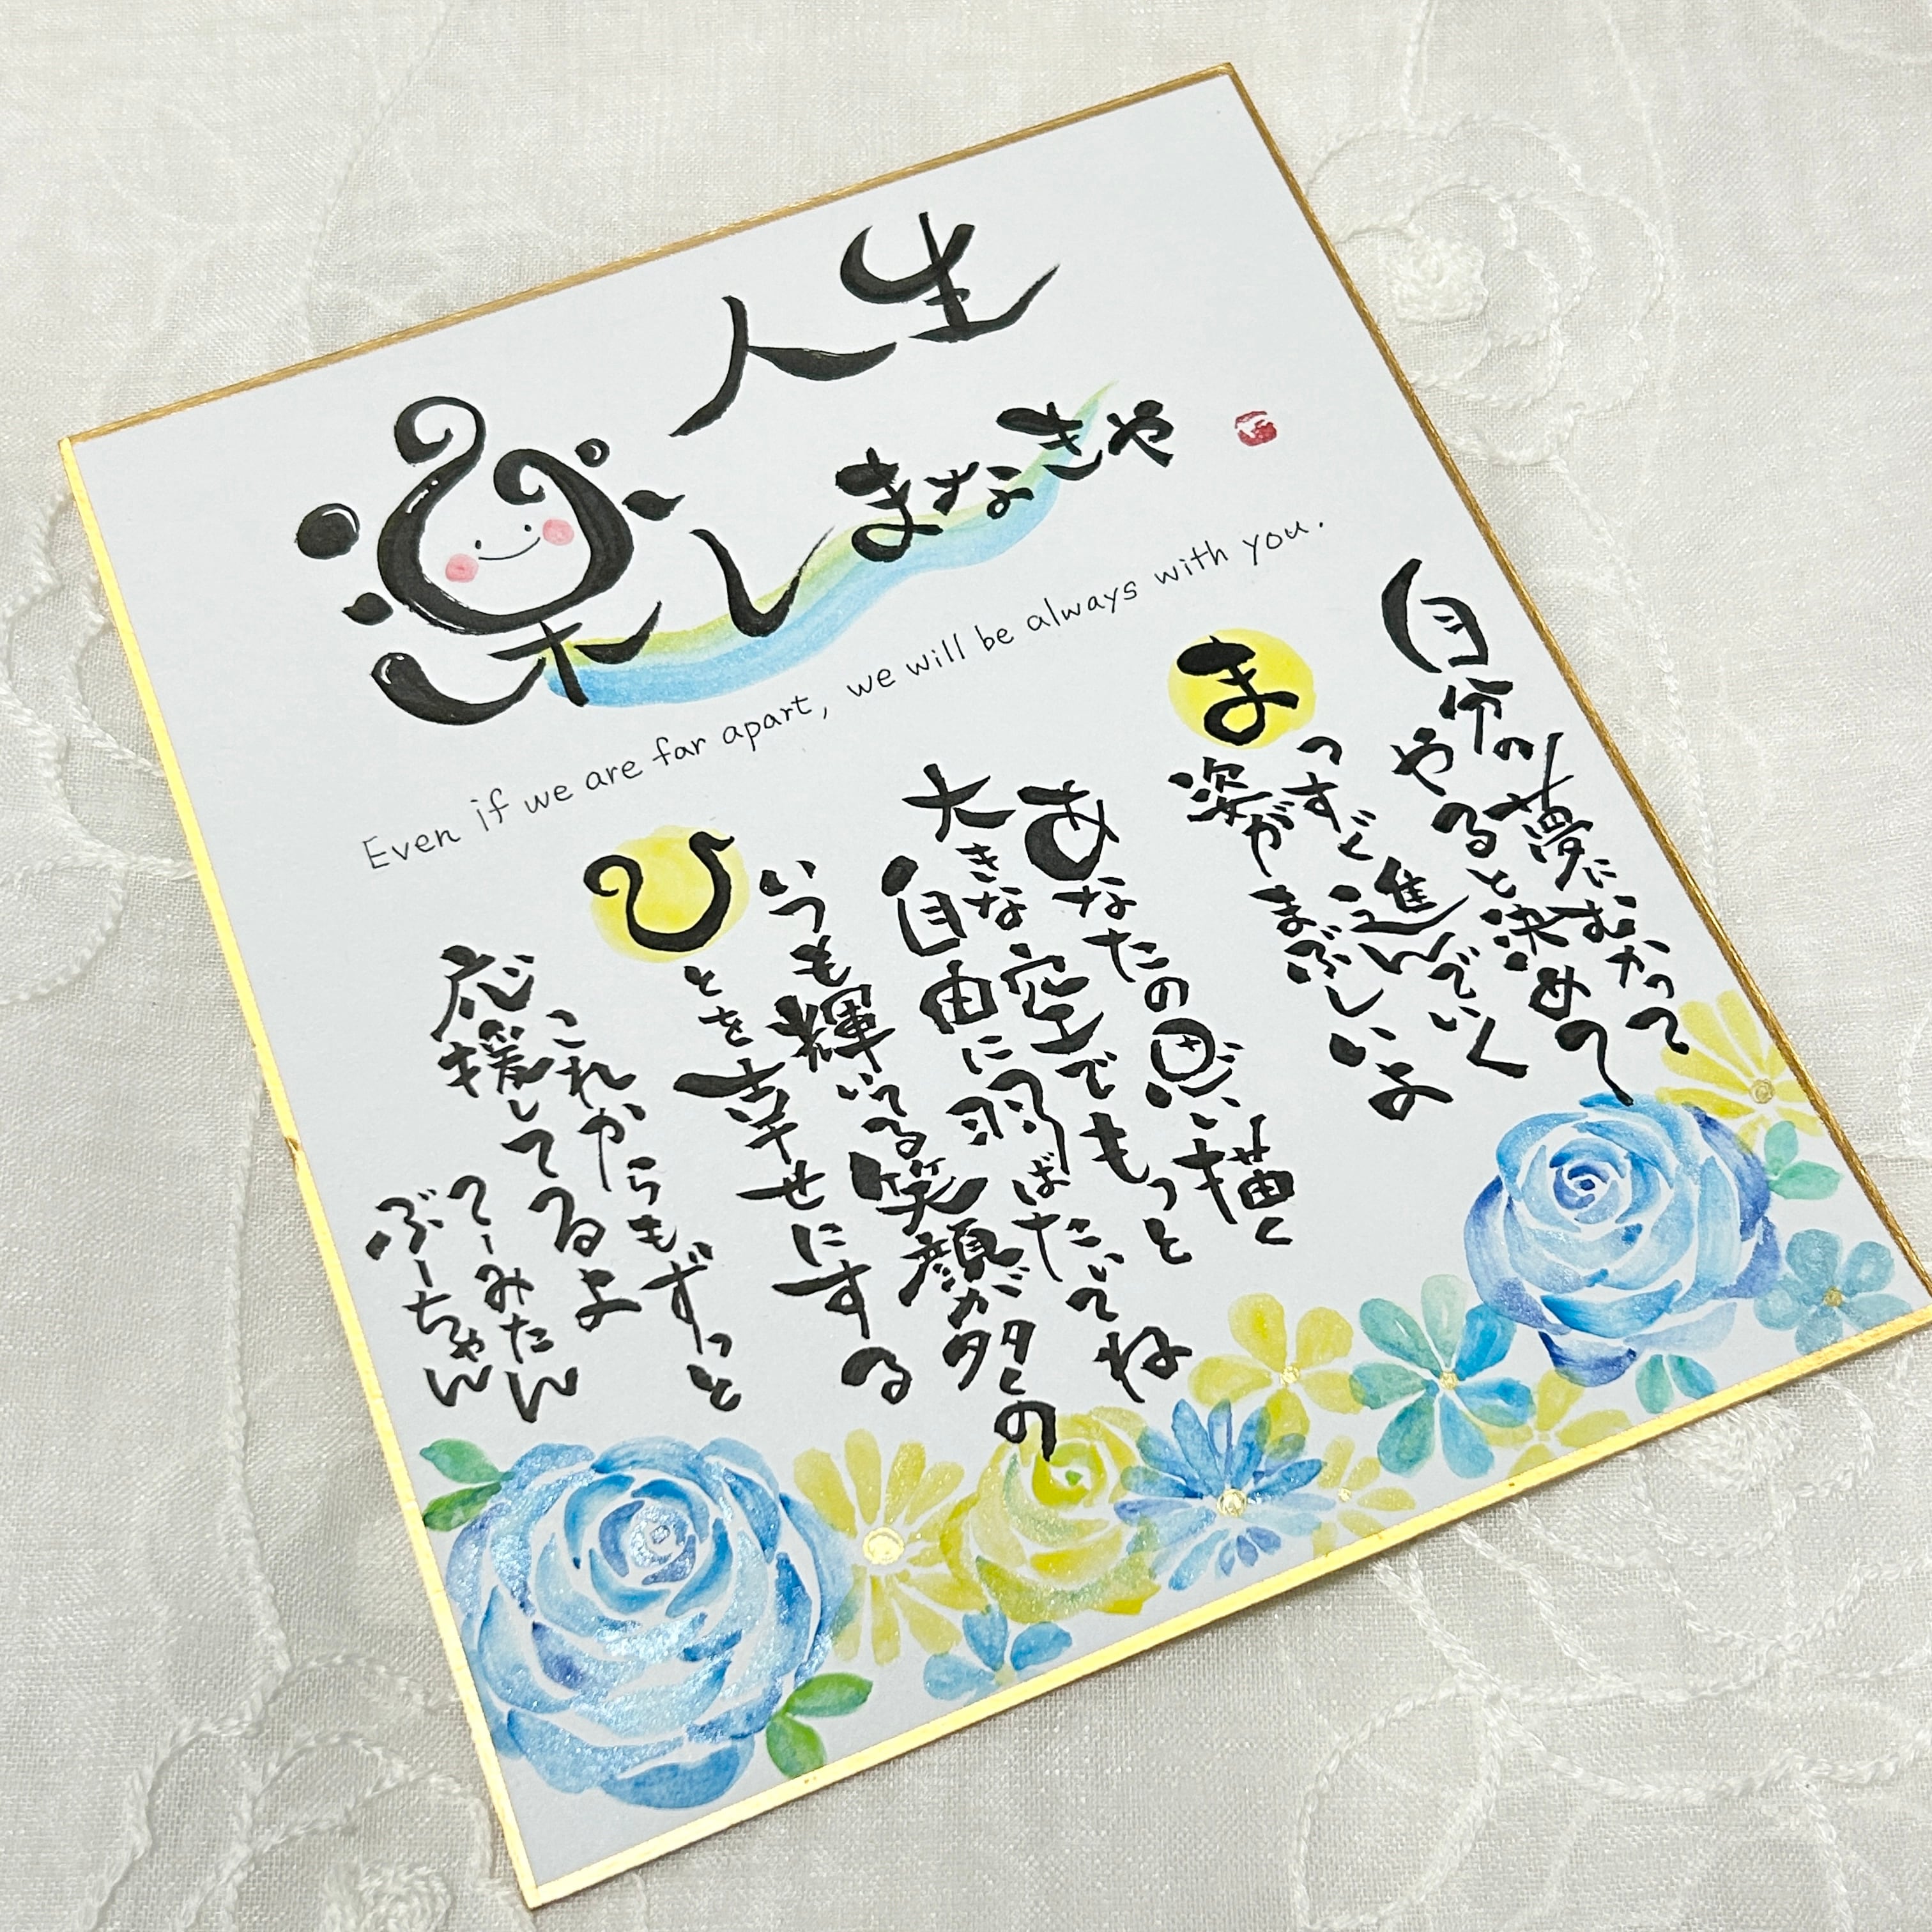 人生
楽しまなきゃ
Even if we are far apart, we will be always with you.
自分の夢にむかって
やると決めて
まっすぐ進んでいく
姿がまぶしいよ
あなたの思い描く
大きな空でもっと
自由に羽ばたいてね
いつも輝いてる笑顔が多くの
ひとを幸せにする
これからもずっと
応援してるよ
てーみたん
ぶーちゃん